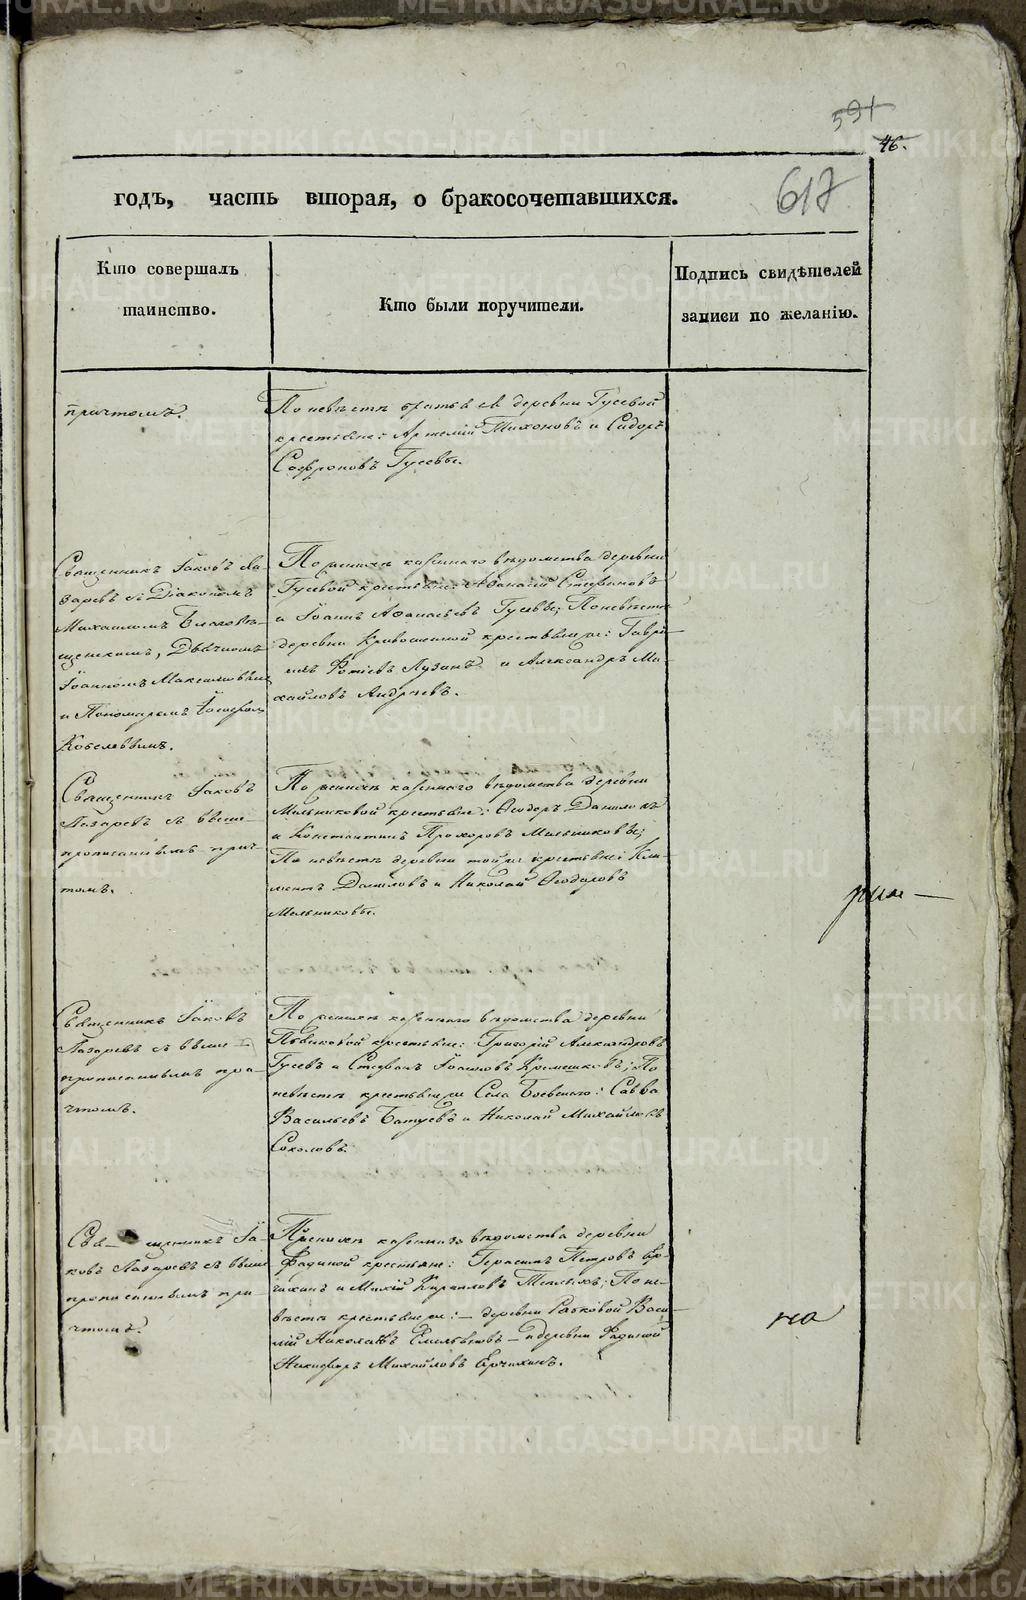 591
46.
617
годъ, часть вторая, о бракосочетавшихся.
Кто совершалъ
таинство.
Кто были поручители.
Подпись свидѣтелей
записи по желанію.
причтомъ.
По невѣстѣ братья ея деревни Гусевой
крестьяне: Артемій Тихоновъ и Сидоръ
Софроновъ Гусевы.
Священникъ Іаковъ Ла-
заревъ съ Діакономъ
Михаиломъ Благовѣ-
щенскимъ, Дьячкомъ
Іоанномъ Максимовымъ
и Пономаремъ Іосифомъ
Кобелевымъ.
По женихѣ казеннаго вѣдомства деревни
Гусевой крестьяне: Афанасій Стефановъ
и Іоаннъ Афанасьевъ Гусевы; По невѣстѣ
деревни Кривошеиной крестьяне: Гаврі-
илъ Фотіевъ Лузинъ и Александръ Ми-
хайловъ Андреевъ.
Священникъ Іаковъ
Лазаревъ съ выше-
прописаннымъ прич-
томъ.
По женихѣ казеннаго вѣдомства деревни
Мельниковой крестьяне: Ѳеодоръ Даниловъ
и Константинъ Прохоровъ Мельниковы;
По невѣстѣ деревни тойже крестьяне: Кли-
ментъ Даниловъ и Николай Ѳеодоровъ
Мельниковы.
Священникъ Іаковъ
Лазаревъ съ выше-
прописаннымъ при-
чтомъ.
По женихѣ казеннаго вѣдомства деревни
крестьяне: Григорій Александровъ
Гусевъ и Стефанъ Іоанновъ Кремешковъ; По
невѣстѣ крестьяне Села Боевскаго: Савва
Васильевъ Батуевъ и Николай Михайловъ
Соколовъ.
Свя- щенникъ Іа-
ковъ Лазаревъ съ выше
прописаннымъ при-
чтомъ.
По женихѣ казеннаго вѣдомства деревни
Фадиной крестьяне: Герасимъ Петровъ Ер-
чихинъ и Михій Кириловъ; По не-
вѣстѣ крестьяне: - деревни Рабковой Васи-
лій Николаевъ Емельяновъ - и деревни Фадиной
Никифоръ Михайловъ Ерчихинъ.
METRIKI.GASO-URAL.RU